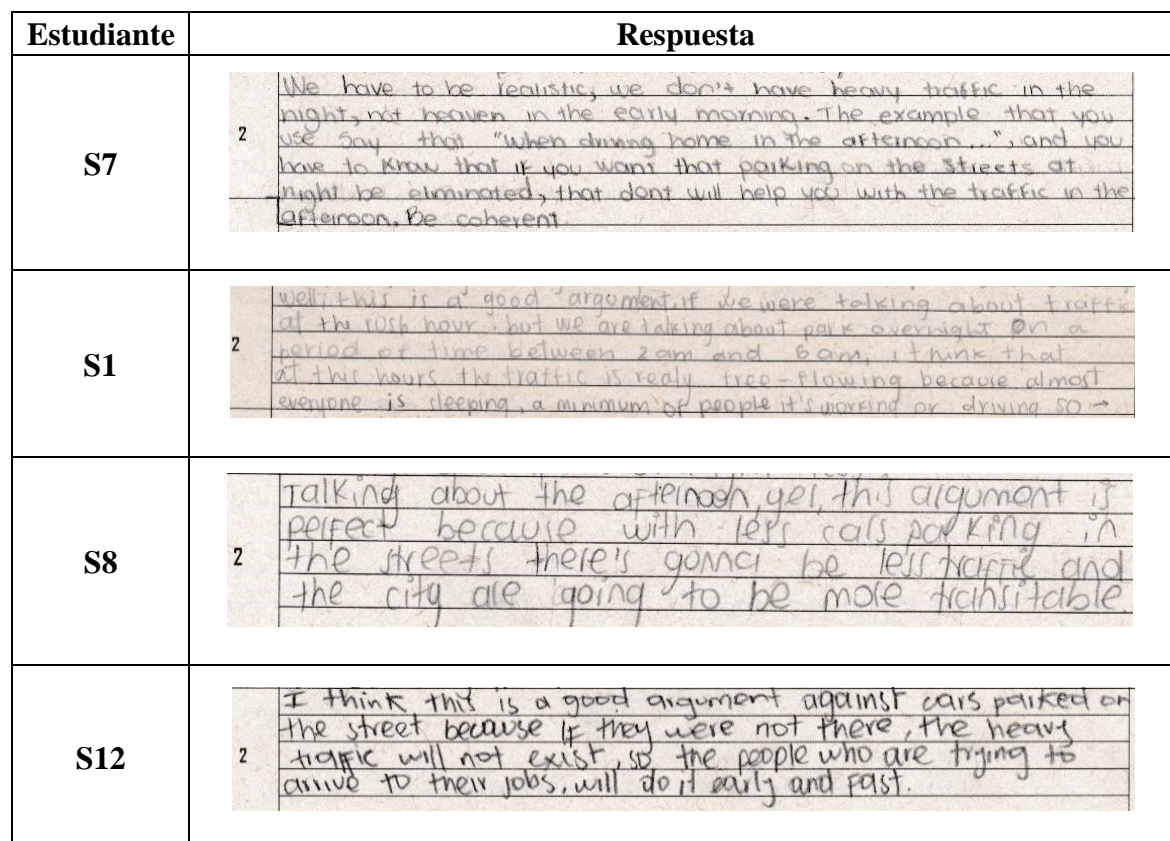 Estudiante Respuesta
S7
2
We have to be realistic, we don't have heavy traffic in the
night, not heaven in the early morning. The example that you
use say that "when driving home in the afternoon...", and you
have to know that if you want that parking on the streets at
night be eliminated, that dont will help you with the traffic in the
afternoon. Be coherent.
S1
2
well, this is a good argument, if we were talking about traffic
at the rush hour. but we are talking about park overnight on a
period of time between 2am and 6am, i think that
at this hours the traffic is realy free-flowing because almost
everyone is sleeping, a minimum of people it's working or driving so →
S8
2
Talking about the afternoon, yes, this argument is
perfect because with less cars parking in
the streets there's gonna be less traffic and
the city are going to be more transitable.
S12
2
I think this is a good argument against cars parked on
the street because if they were not there, the heavy
traffic will not exist, so the people who are trying to
arrive to their jobs, will do it early and fast.